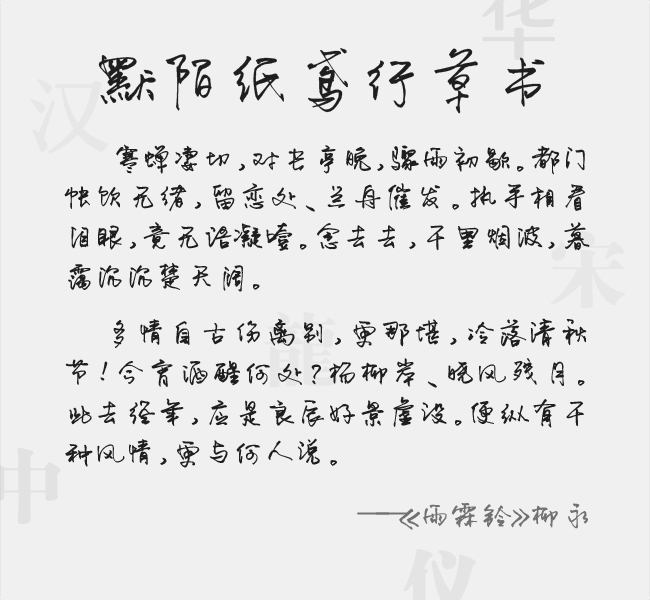 默陌纸鸢行草书
寒蝉凄切,对长亭晚,骤雨初歇。都门
怅饮无绪,留恋处、兰舟催发。执手相看
泪眼,竟无语凝噎。念去去,千里烟波,暮
霭沉沉楚天阔。
多情自古伤离别,更那堪,冷落清秋
节!今宵酒醒何处?杨柳岸、晓风残月。
此去经年,应是良辰好景虚设。便纵有千
种风情,更与何人说。
——《雨霖铃》柳永
华
汉
宋
龍
中
仪